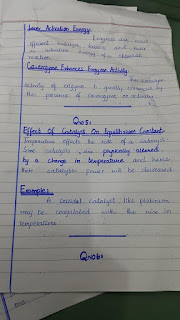 Lower Activation Energy:
Enzymes are most
efficient catalyst known and lower
the activation energy of a chemical
reaction.
Co-enzyme Enhances Enzyme Activity:
The catalytic
activity of enzyme is greatly enhanced by
the presence of co-enzyme or activator.
Q no 5:
Effect Of Catalyst On Equilibrium Constant:
Temperature effects the rate of a catalyst.
Some catalysts are physically altered
by a change in temperature and hence
their catalytic power will be decreased
Examples:
A colloidal catalyst like platinum
may be coagulated with the rise in
temperature
Q no 6: